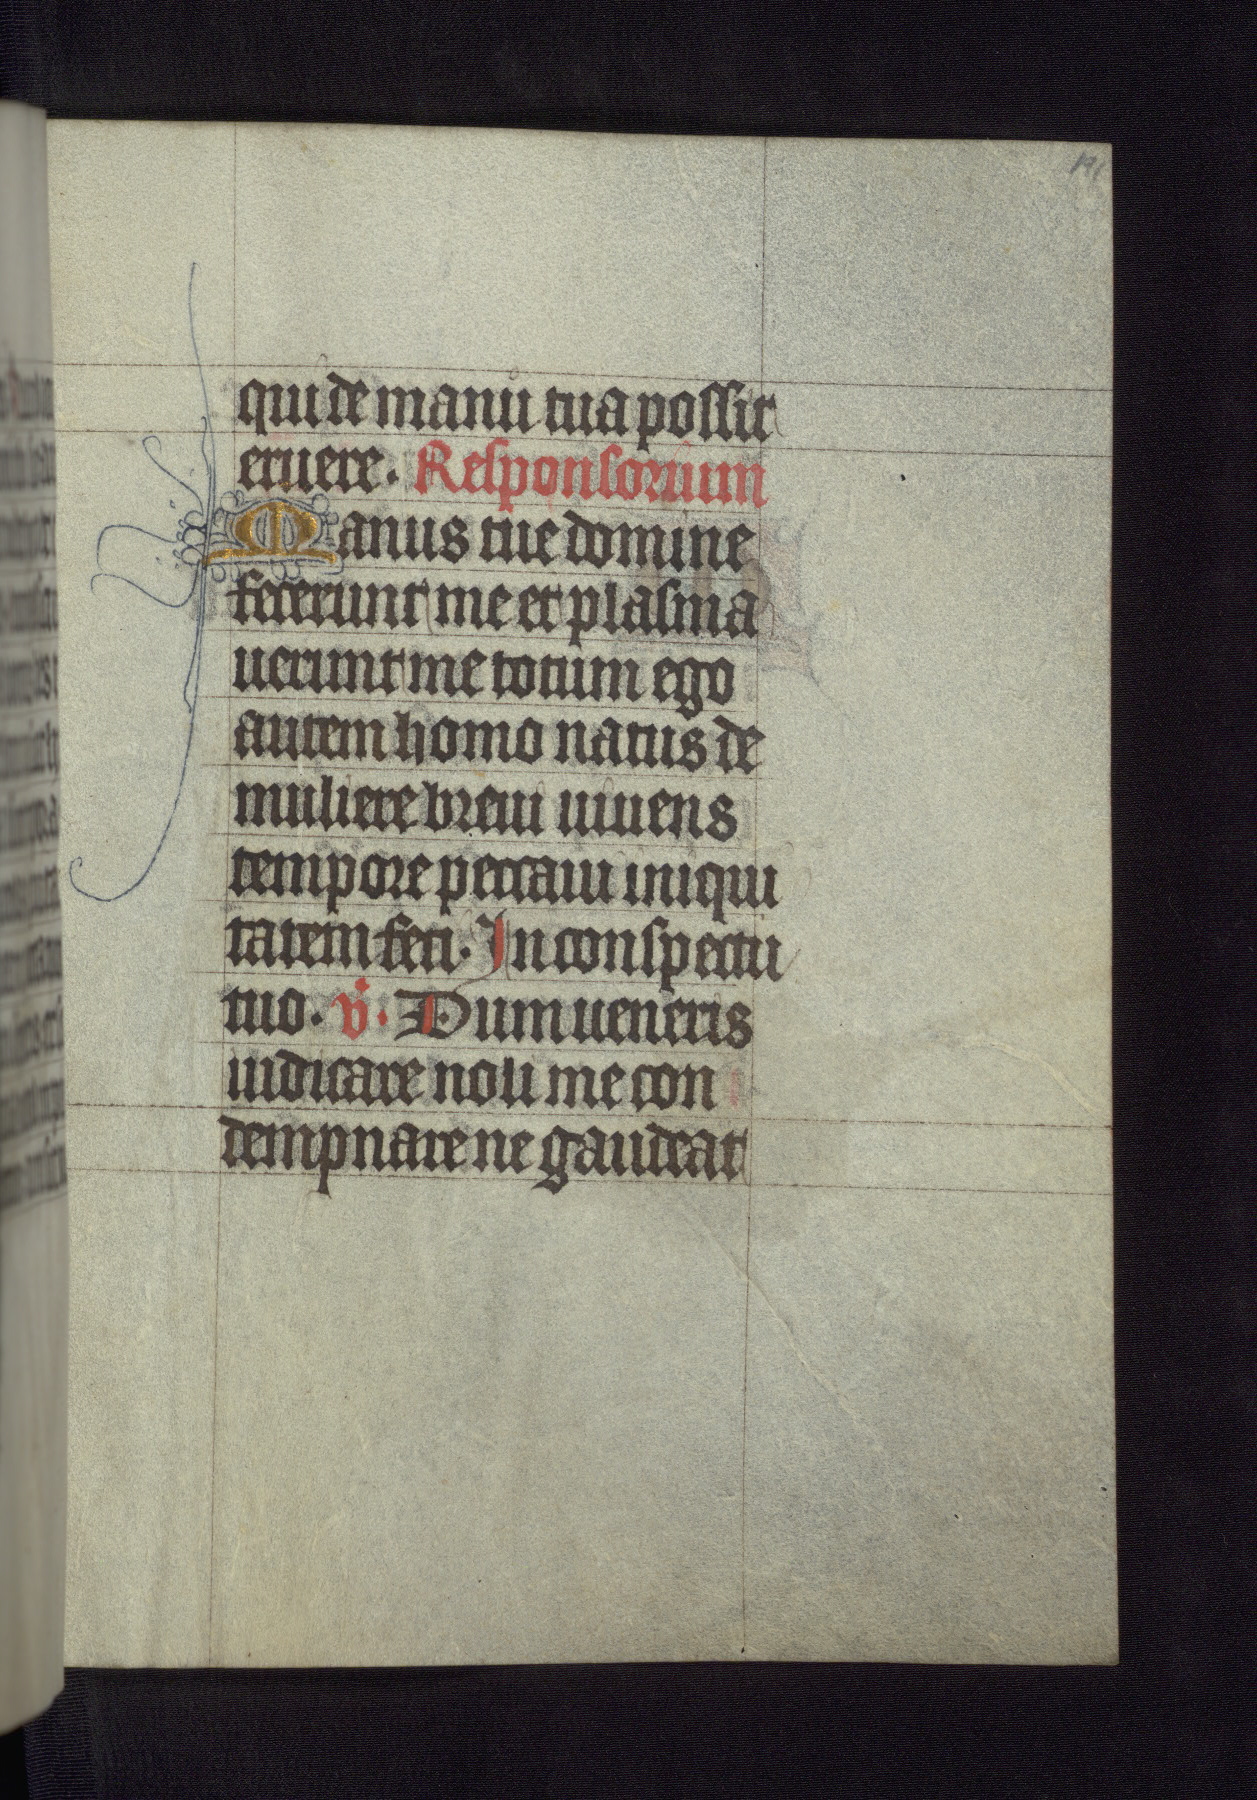 qui de manu tua possit
eruere. Responsorium
Manus tue domine
fecerunt me et plasma
uerunt me totum ego
autem homo natus de
muliere breui uiuens
tempore peccaui iniqui
tatem feci. In conspectu
tuo. v. Dum ueneris
iudicare noli me con
dempnare ne gaudeat